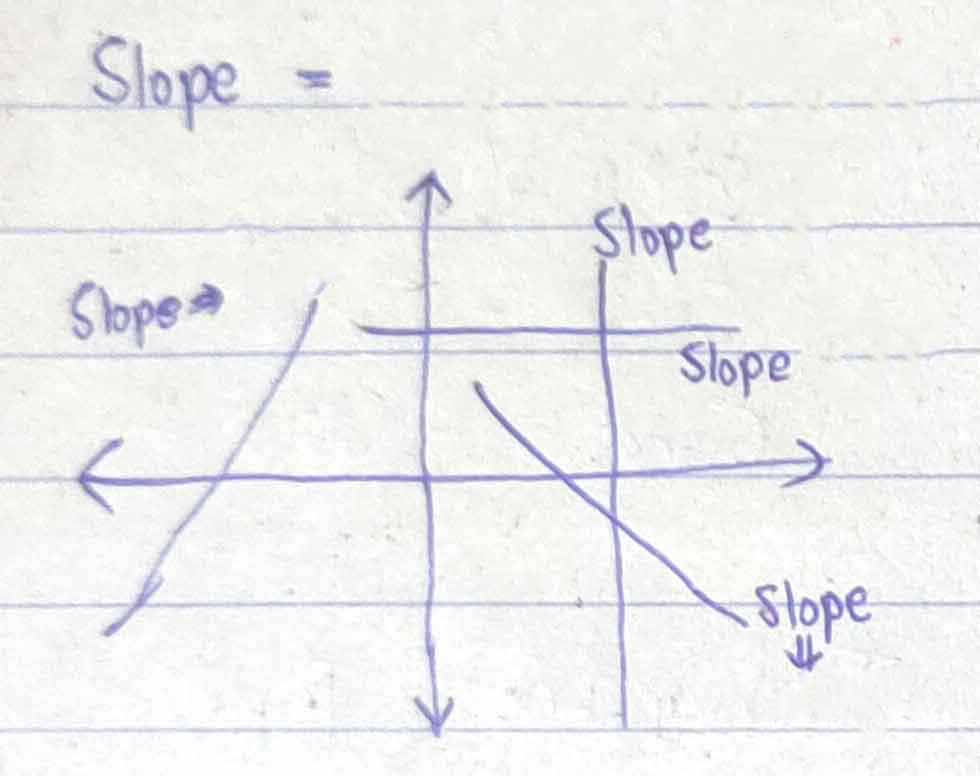 Slope =
Slope
Slope →
Slope
Slope